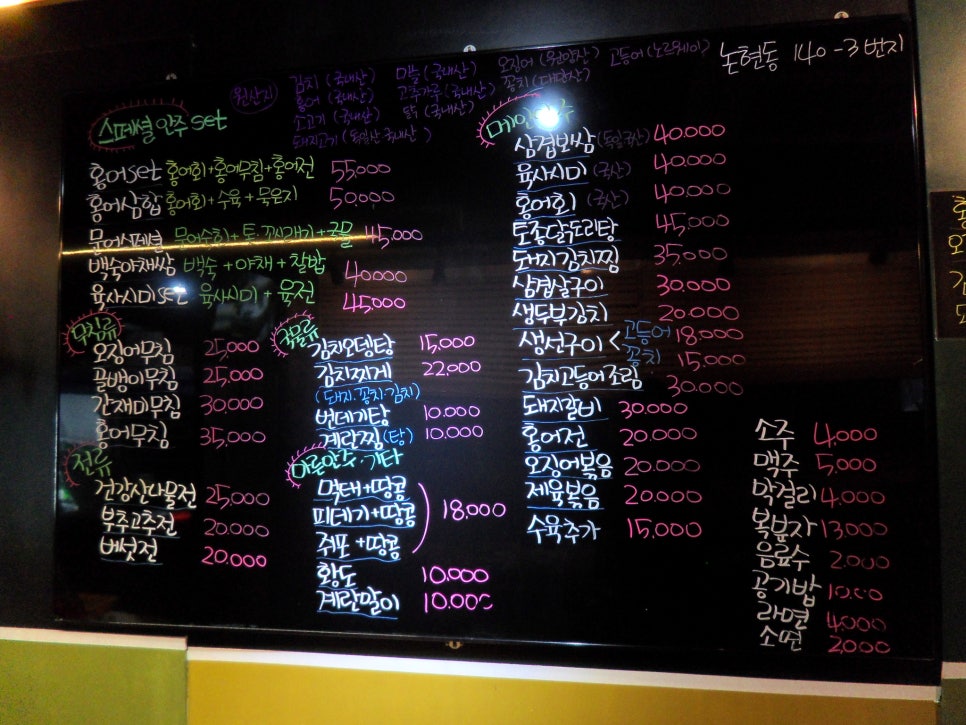 논현동 140-3번지
원산지
김치 (국내산) 마늘 (국내산) 오징어 (원양산) 고등어 (노르웨이)
홍어 (국내산) 고추가루 (국내산) 꽁치 (대만산)
소고기 (국내산) 닭 (국내산)
돼지고기 (독일산 국내산)
스페셜 안주 set
홍어set 홍어회+홍어무침+홍어전 55,000
홍어삼합 홍어회+수육+묵은지 50,000
문어스페셜 문어숙회+톳, 꼬시래기+국물 45,000
백숙야채쌈 백숙+야채+찰밥 40,000
육사시미set 육사시미+육전 45,000
무침류
오징어무침 25,000
골뱅이무침 25,000
간재미무침 30,000
홍어무침 35,000
전류
건강산나물전 25,000
부추고추전 20,000
버섯전 20,000
국물류
김치오뎅탕 15,000
김치찌개 22,000
(돼지.꽁치.김치)
번데기탕 10,000
계란찜(탕) 10,000
마른안주.기타
먹태+땅콩
피데기+땅콩 18,000
쥐포+땅콩
황도 10,000
계란말이 10,000
메인안주
삼겹보쌈 (독일산) 40,000
육사시미 (국산) 40,000
홍어회 (국산) 40,000
토종닭도리탕 45,000
돼지김치찜 35,000
삼겹살구이 30,000
생두부김치 20,000
생선구이 < 고등어 18,000
꽁치 15,000
김치고등어조림 30,000
돼지갈비 30,000
홍어전 20,000
오징어볶음 20,000
제육볶음 20,000
수육추가 15,000
소주 4,000
맥주 5,000
막걸리 4,000
복분자 13,000
음료수 2,000
공기밥 1,000
라면 4,000
소면 2,000